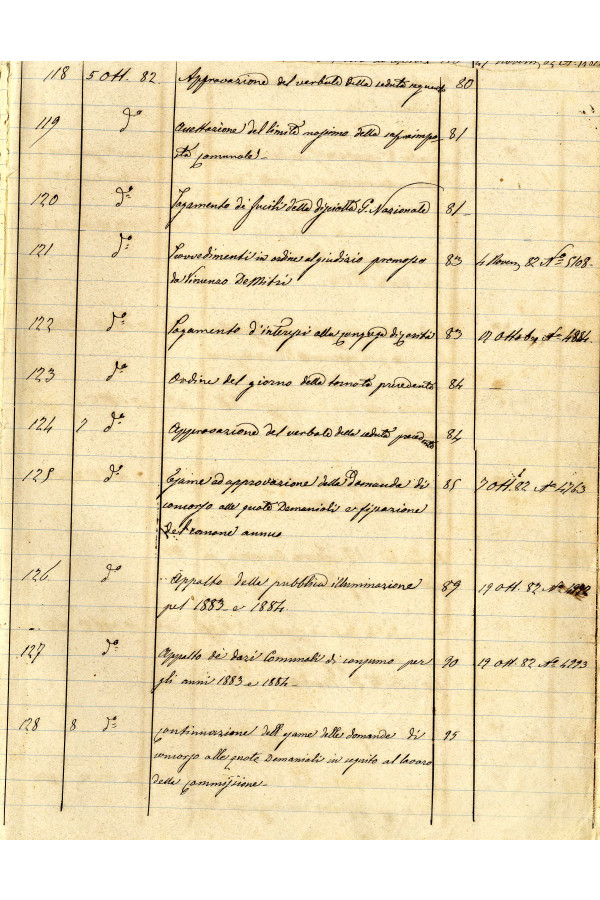 118 5 Ott. 82 Approvazione del verbale della seduta 80
119 do accettazione del limite massimo della sovraimpo- 81
sta comunale!
120 do Pagamento di fucili della disciolta G. Nazionale 81-
121 do Provvedimenti in ordine al giudizio promosso 83 4 Novem 82 No 5108-
da Vincenzo DeMitri
122 do Pagamento d'interessi alla congrega di carità 83 Ottobre No 4884-
123 do Ordine del giorno della tornata precedente 84
124 7 do Approvazione del verbale della seduta precedente 84
125 do Esame ed approvazione della Domanda di 85 7 Ott. 82 No 4763
concorso alle quote Demaniali e fissazione
del canone annuo
126 do Appalto della pubblica illuminazione 89 19 Ott. 82 No
pel 1883 e 1884.
127 do Appalto dei dazi Comunali di consumo per 90 19 Ott. 82 No 4993
gli anni 1883 e 1884-
128 8 do continuazione dell'esame delle domande di 95
concorso alle quote Demaniali in seguito al lavoro
della Commissione-